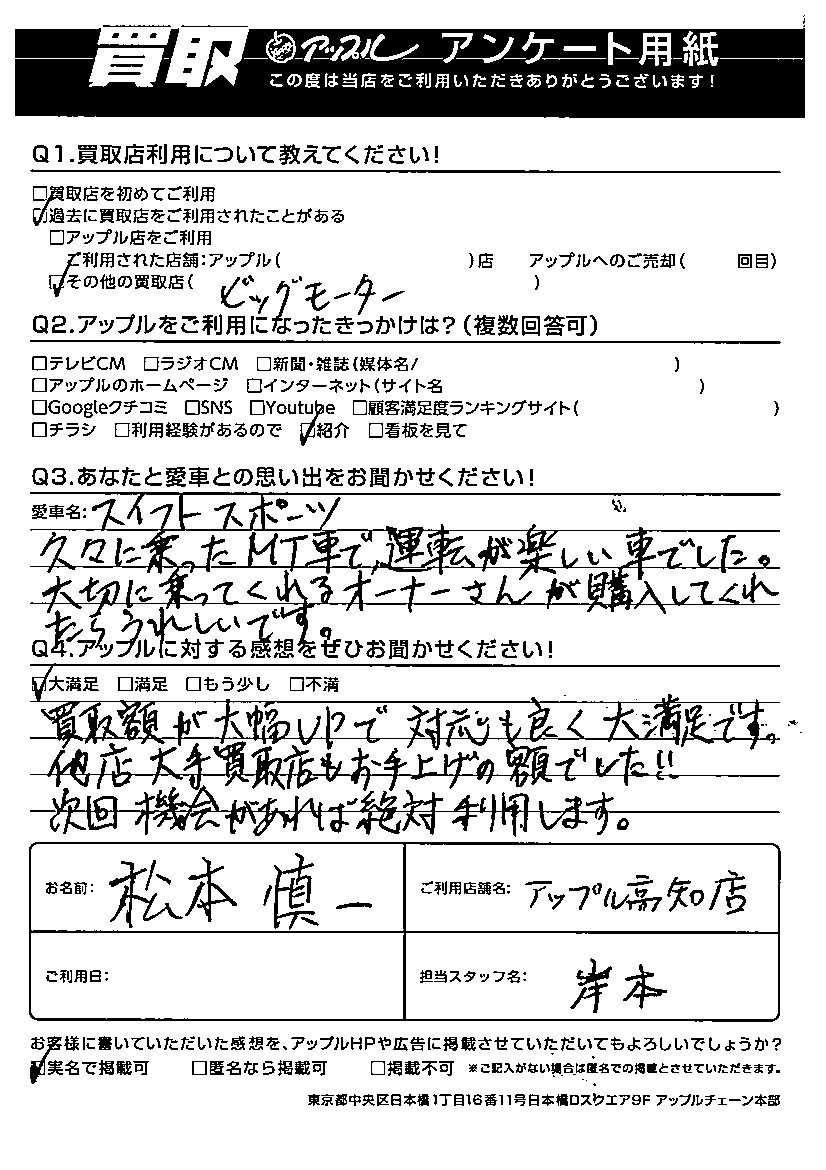 買取 アップル アンケート用紙
この度は当店をご利用いただきありがとうございます!
Q1.買取店利用について教えてください!
□買取店を初めてご利用
☑過去に買取店をご利用されたことがある
□アップル店をご利用
ご利用された店舗:アップル( )店 アップルへのご売却( 回目)
☑その他の買取店( ビッグモーター )
Q2.アップルをご利用になったきっかけは?(複数回答可)
□テレビCM □ラジオCM □新聞・雑誌(媒体名/ )
□アップルのホームページ □インターネット(サイト名 )
□Googleクチコミ □SNS □Youtube □顧客満足度ランキングサイト( )
□チラシ □利用経験があるので ☑紹介 □看板を見て
Q3.あなたと愛車との思い出をお聞かせください!
愛車名:スイフトスポーツ
久々に乗ったMT車で、運転が楽しい車でした。
大切に乗ってくれるオーナーさんが購入してくれ
たらうれしいです。
Q4.アップルに対する感想をぜひお聞かせください!
☑大満足 □満足 □もう少し □不満
買取額が大幅UPで対応も良く大満足です。
他店大手買取店もお手上げの額でした!!
次回機会があれば絶対利用します。
お名前: 松本 慎一 ご利用店舗名: アップル高知店
ご利用日: 担当スタッフ名: 岸本
お客様に書いていただいた感想を、アップルHPや広告に掲載させていただいてもよろしいでしょうか?
☑実名で掲載可 □匿名なら掲載可 □掲載不可 ※ご記入がない場合は匿名での掲載とさせていただきます。
東京都中央区日本橋1丁目16番11号日本橋Dスクエア9F アップルチェーン本部